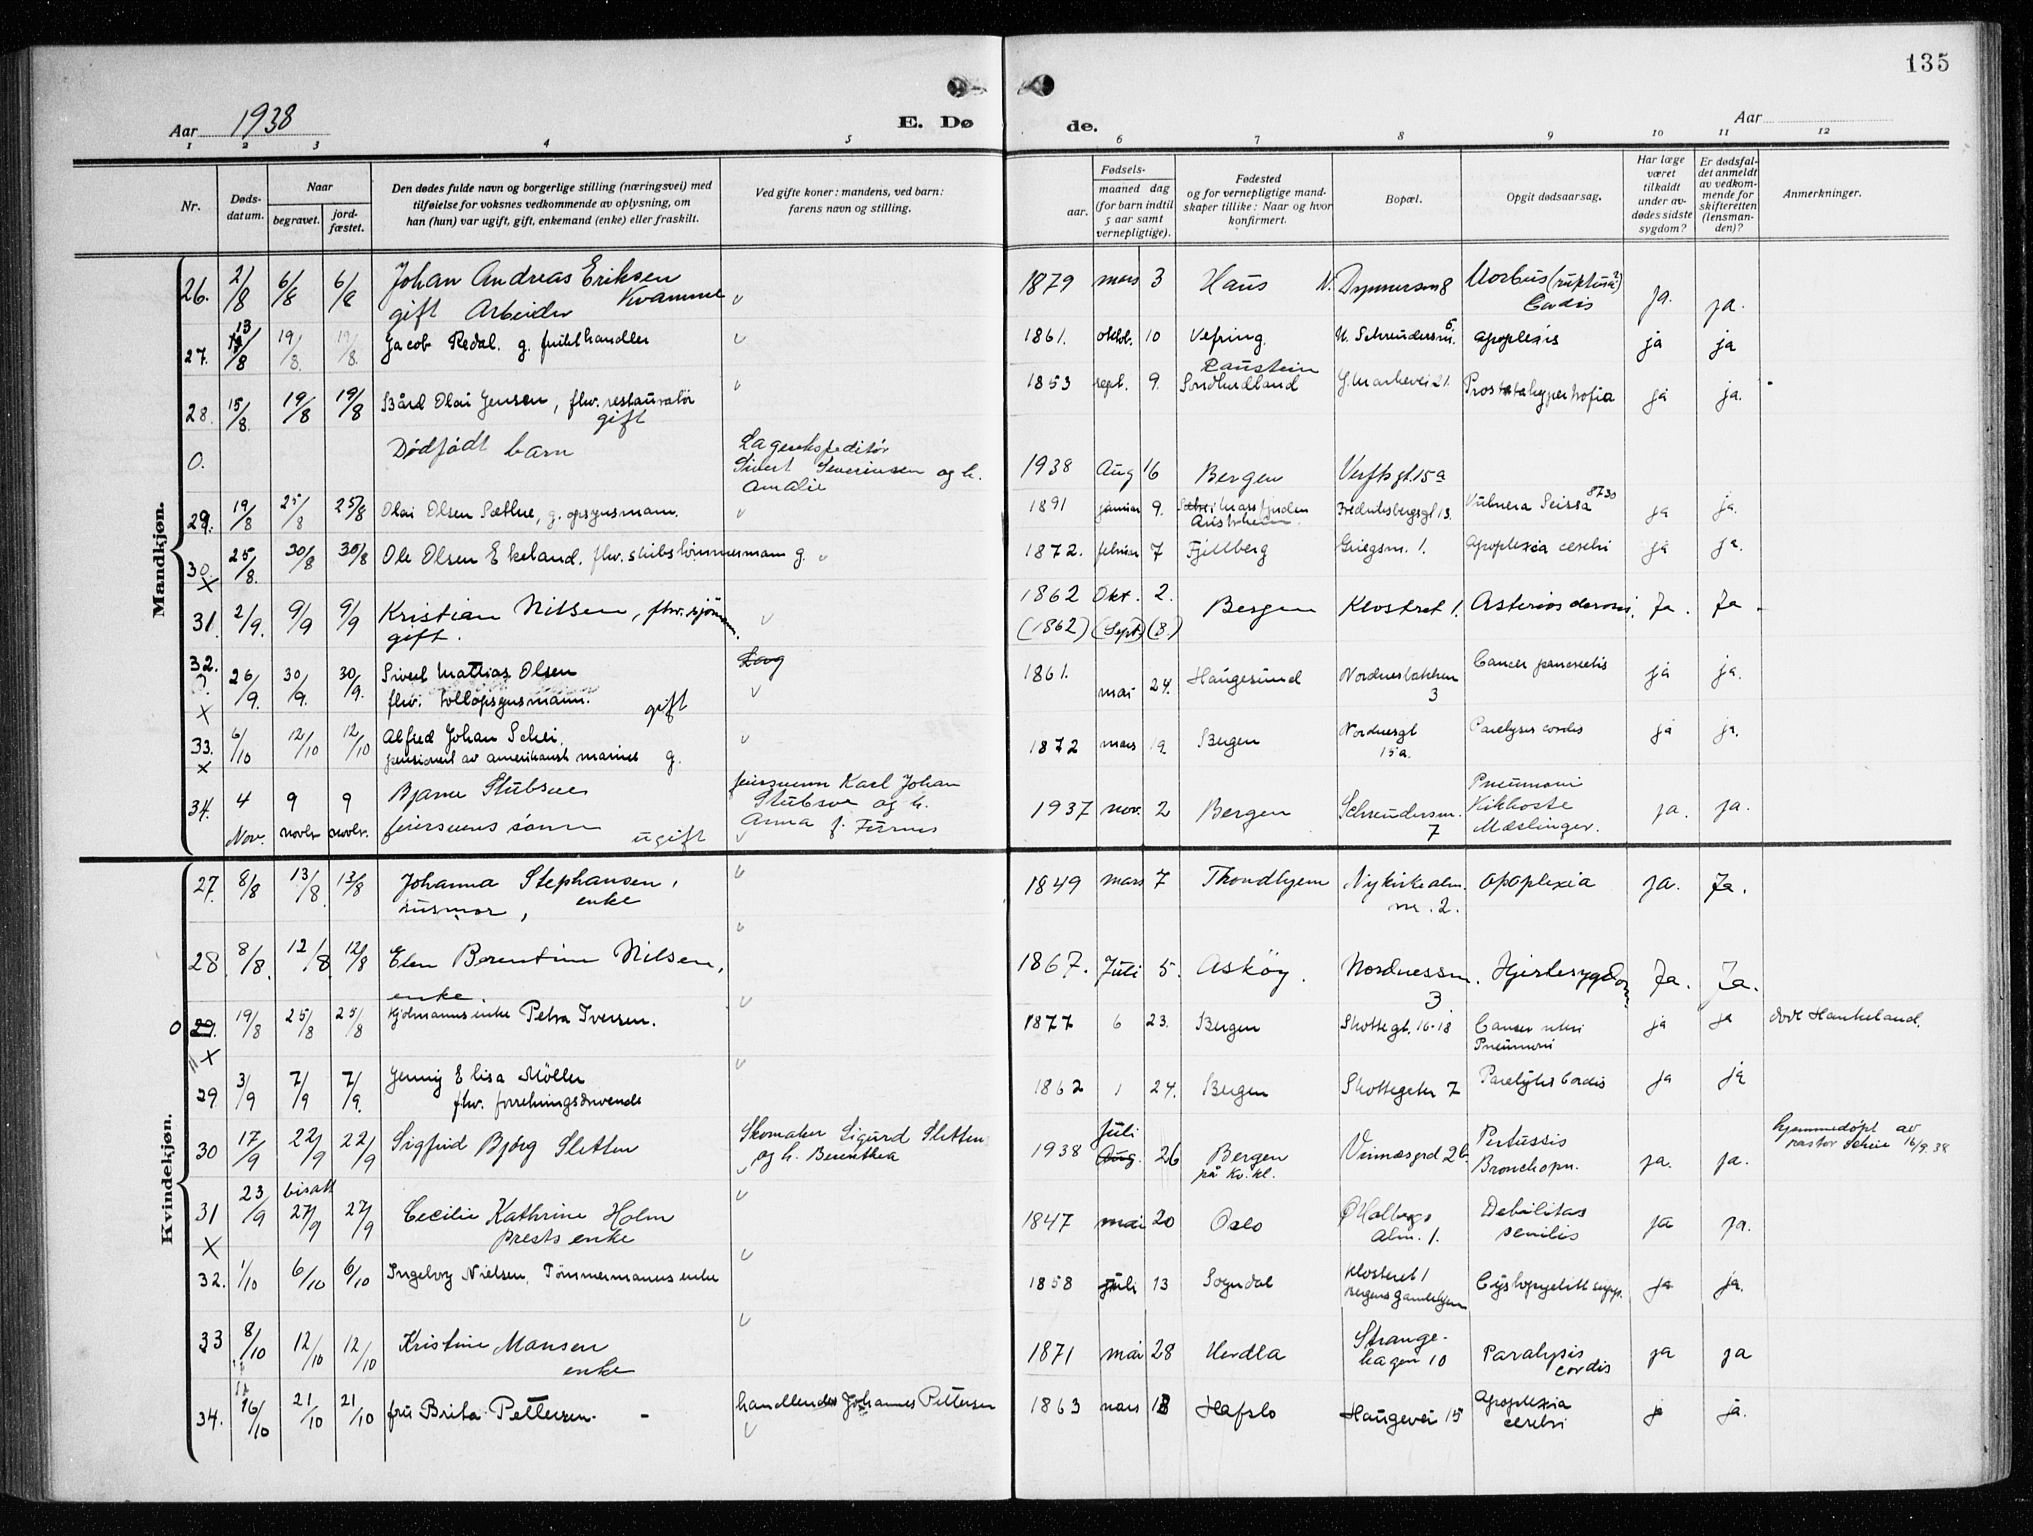 135
Aar 1938
E. Dø de.
Aar
1 2 3 4 5 6 7 8 9 10 11 12
Nr.
Døds-
datum.
Naar
begravet.
jord-
fæstet.
Den dødes fulde navn og borgerlige stilling (næringsvei) med
tilføielse for voksnes vedkommende av oplysning, om
han (hun) var ugift, gift, enkemand (enke) eller fraskilt.
Ved gifte koner: mandens, ved barn:
farens navn og stilling.
Fødsels-
aar.
maaned dag
(for barn indtil
5 aar samt
vernepligtige).
Fødested
og for vernepligtige mand-
skaper tillike: Naar og hvor
konfirmert.
Bopæl.
Opgit dødsaarsag.
Har læge
været
tilkaldt
under av-
dødes sidste
sygdom?
Er dødsfal-
det anmeldt
av vedkom-
mende for
skifteretten
(lensman-
den)?
Anmerkninger.
Mandkjøn.
26. 2/8 6/8 6/8 Johan Andreas Eriksen Kvamme
gift Arbeider
1879 mars 3 Haus Morbus (ruktura?)
Cordis ja. ja.
27. 13/8 19/8. 19/8. Jacob Redal. g.
1861. oktob. 10 Vefring. apoplexis ja ja
28. 15/8. 19/8 19/8 Bård Olai Jensen, fhv. restauratør
gift
1853 sept. 9. Raustein
Søndhordland Prostatahypertrofia ja ja.
0. Dødfødt barn Lagerekspeditør
Sivert Severinsen og h.
Amalie
1938 Aug 16 Bergen Verftsgt. 15a
29. 19/8 25/8 25/8 Olai Olsen Sæthre, g. opsynsmann.
1891 januar 9. Austrheim. Fredriksbergsgt 13. Vulnera Scissa 8730 ja ja.
30 X 25/8. 30/8 30/8 Ole Olsen Ekeland. fhv. skibstømmermann g.
1872. februar 7 Fjellberg Griegsm. 1. Apoplexia cerebri ja ja.
31. 2/9. 9/9 9/9 Kristian Nilsen, fhv. sjömann.
gift.
1862 Okt. 2. Bergen Klostret 1. Ja. Ja.
(1862) (Sept) (8.)
32. X 26/9. 30/9. 30/9. Sivert Mattias Olsen
fhv. tollopsynsmann. gift
1861. mai 24. Haugesund Nordnesbakken
3 Cancer pancreatis ja ja.
33. X 6/10 12/10 12/10 Alfred Johan Schei,
pensionert av amerikansk marine g.
1872 mars 19. Bergen Nordnesgt
15a. Paralysis cordis ja ja.
34. 4 Nov. 9 novbr 9 novbr. Bjarne Stubsøe
feiersvens sønn ugift
feiersvenn Karl Johan
Stubsøe og h.
Anna f. Furnes
1937 nov. 2 Bergen Schreudersm.
7 Pneumoni
Kikhoste
Mæslinger. ja. ja.
Kvindekjøn.
27. 8/8 13/8. 13/8 Johanna Stephansen,
husmor, enke
1849 mars 7 Throndhjem Nykirkealm.
nr. 2. apoplexia ja. Ja.
28. 8/8. 12/8. 12/8 Elen Berentine Nilsen,
enke.
1867. Juli 5. Askøy. Nordnessm.
3 Hjertesygdom Ja. Ja.
0 29. X 19/8 25/8 25/8 enke Petra Iversen.
1877 6 23. Bergen Skottegt. 16-18 Cancer uteri
Pneumoni ja ja døde Haukeland.
29 3/9 7/9 7/9. Jenny Elisa Möller
fhv. forretningsdrivende
1862 1 24. Bergen Skottegaten 7 Paralysis Cordis ja ja
30 17/9 22/9 22/9 Sigfrid Bjørg Sletten Skomaker Sigurd Sletten
og h. Berenthea
1938 Juli Aug. 26 Bergen
på kv. kl. Pertussis
Bronchopn. ja. ja. hjemmedøpt av
pastor Scheie 16/9.38
31 X 23/9 bisatt 27/9 27/9 Cecilie Kathrine Holm
prests enke
1847 mai 20 Oslo Ø Holbergs
alm. 1. Debilitas
senilis ja ja.
32. 1/10 6/10 6/10 Ingeborg Nielsen, Tømmermanns enke
1858 juli 13 Sogndal klosteret 1
Bergens Gamlehjem ja ja.
33 8/10 12/10 12/10 Kristine Monsen
enke
1871 mai 28 Herdla Strange-
hagen 10 Paralysis
cordis ja ja
34. 16/10 21/10 21/10 fru Brita Pettersen. – handlende Johannes Pettersen
1863 mars Hafslo Haugevei 15 Apoplexia
cerebri ja ja.